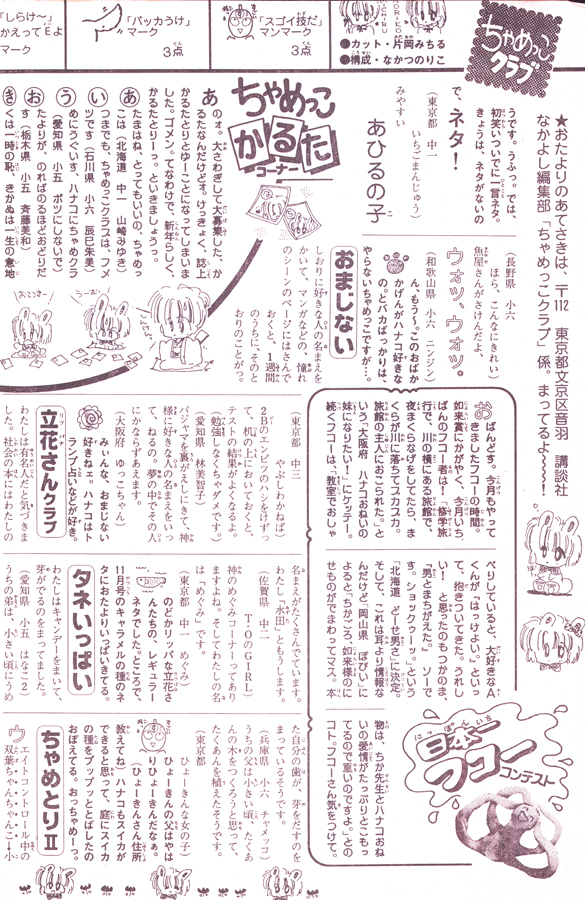 ちゃめっこクラブ
●カット・片岡みちる
●構成・なかつのりこ
「スゴイ技だ」
マンマーク
3点
「バッカうけ」
マーク
3点
「しらけ〜」
かえってEよ
マーク
★おたよりのあてさきは、〒112 東京都文京区音羽 講談社
なかよし編集部「ちゃめっこクラブ」係。まってるよ〜〜〜!
うです。うふっ。では、
初笑いついでに一言ネタ。
きょうは、ネタがないの
で、ネタ!
(東京都 中一
いちごまんじゅう)
みやすい
あひるの子
(長野県 小六
ほら、こんなにきれい)
魚屋さんがさけんだよ、
ウォッ、ウォッ。
(和歌山県 小六 ニンジン)
ん、もうー。このおばか
かげんがハナコ好きな
の。とバカばっかりは、
やらないちゃめっこですが…。
おまじない
しおりに好きな人の名まえを
かいて、マンガなどの、憧れ
のシーンのページにはさんで
おくと、1週間
のうちに、そのと
おりのことが。
ちゃめっこ
かるた
コーナー
あのォ。大さわぎして大募集した、か
るたなんだけどォ。けっきょく、誌上
かるたとりとゆーことになってしまいま
した。ゴメン。てなわけで、新年らしく、
かるたとりーっ。といきましょうっ。
あ たまはね、とってもいいの、ちゃめっ
こは(北海道 中一 山崎みゆき)
い つまでも、ちゃめっこクラスは、フメ
ツです(石川県 小六 辰巳朱美)
う めにうぐいす、ハナコにちゃめクラ
(愛知県 小五 ボツにしないで)
お たよりが、のればのるほどおどりだ
す(栃木県 小五 斉藤美和)
き くは一時の恥、きかぬは一生の意地
おばんどす。今月もやって
きましたフコーの時間。
如来賞にかがやく、今月いち
ばんのフコー者は!「修学旅
行で、川の横にある旅館で、
夜まくらなげをしてたら、ま
くらが川に落ちてプカプカ。
旅館の主人におこられた。」と
いう「大阪府 ハナコおねいの
妹になりたい!」にケッテー。
続くフコーは、「教室でおしゃ
べりしていると、大好きなA
くんが「はっけよい。」といっ
て、抱きついてきた。うれし
い! と思ったのもつかのま、
「男とまちがえた。」 ソーで
す。ショックゥーッ。」という
「北海道 どーせ男さ」に決定。
そして、これは耳より情報な
んだけど「岡山県 ぽぴい」に
よると、「ちかごろ、如来様のに
せものがでまわってマス。本
物は、ちか先生とハナコおね
いの愛情がたっぷりとこもっ
てるので重いのですよ。」との
コト。フコーさん気をつけて。
にっぽんいち
日本一
フコー
コンテスト
(東京都 中三
やぶしわかねば)
2Bのエンピツのハシをけずっ
て、机の上においておくと、
テストの結果がよくなるよ。
でも、勉強しなくちゃダメです。
(愛知県 林美智子)
パジャマを裏がえしにきて、神
様に好きな人の名まえをいっ
て、ねるの。夢の中でその人
にかならずあえます。
(大阪府 ゆっこちゃん)
みぃんな、おまじない
好きねェ。ハナコはト
ランプ占いなどが好き。
立花さんクラブ
わたしは有名人だと気づきま
した。社会の本にはわたしの
名まえがたくさんでています。
わたし「水田」ともうします。
(佐賀県 中二
T・OのGIRL)
神のめぐみコーナーってあり
ますよね。そしてわたしの名
は「めぐみ」です。
(東京都 中一 めぐみ)
のどかリッパな立花さ
んたちの、レギュラー
ネタでした。ところで、
11月号のキャラメルの種のネ
タにおたよりいっぱいきてる。
タネいっぱい
わたしはキャンデーをまいて、
芽がでるのをまってました。
(愛知県 小五 はなこ2)
うちの弟は、小さい頃にうめ
た自分の歯が、芽をだすのを
まっているそうです。
(兵庫県 小六 チャメッコ)
うちの父は小さい頃、たくあ
んの木をつくろうと思って、
たくあんを植えたそうです。
(東京都
ひょーきんな女の子)
ひょーきんの父はやは
りひょーきんだなぁ。
(ひょーきんさん住所
教えてね)ハナコもスイカが
できると思って、庭にスイカ
の種をプップッととばしたの
おぼえてる。おっちゃめーっ。
ちゃめとりⅡ
ウエイトコントロール中の
双葉ちゃんちゃんこ→小